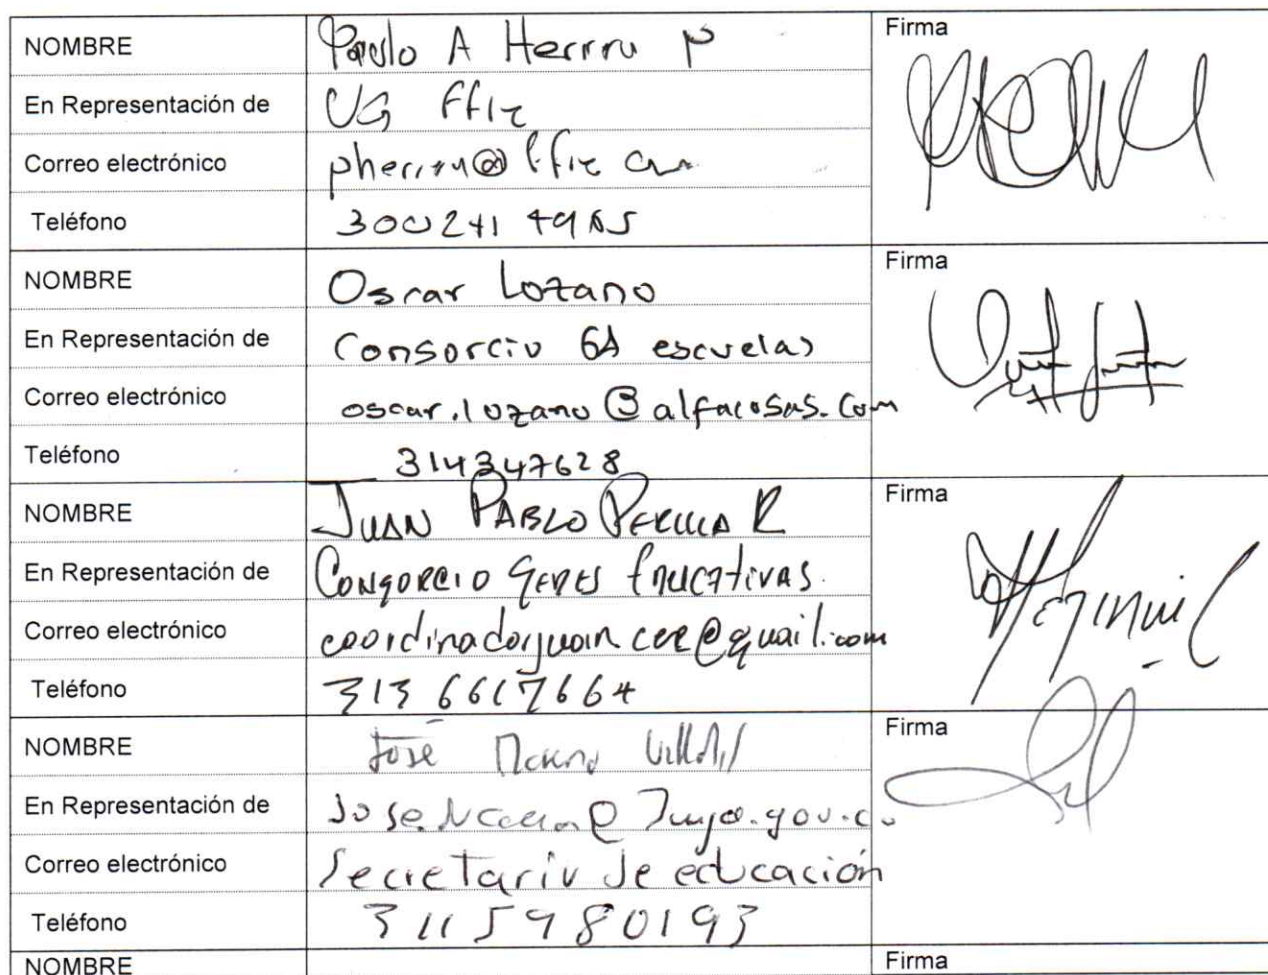 NOMBRE Paulo A Herrera P Firma
En Representación de UG FFIE
Correo electrónico
Teléfono
NOMBRE Oscar Lozano Firma
En Representación de Consorcio GA escuelas
Correo electrónico oscar.lozano@alfacosas.com
Teléfono 314347628
NOMBRE JUAN PABLO R Firma
En Representación de CONSORCIO SEDES EDUCATIVAS.
Correo electrónico coordinadorjuan.cee@gmail.com
Teléfono 313 6617664
NOMBRE José Moreno Firma
En Representación de
Correo electrónico Secretaria de educación
Teléfono 3115980193
NOMBRE Firma